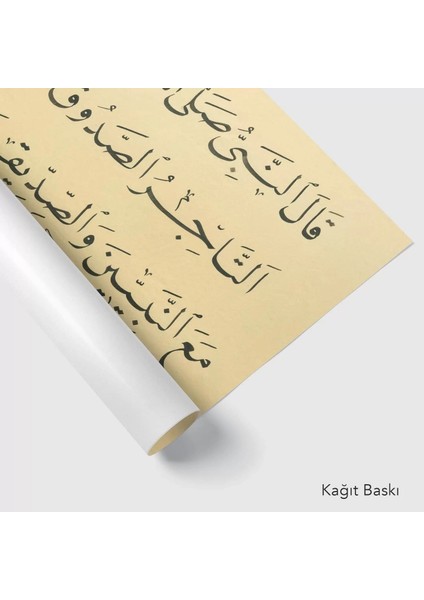 قَالَ ٱلنَّبِيُّ صَلَّى
اَلتَّاجِرُ ٱلصَّدُوقُ
مَعَ ٱلنَّبِيِّينَ وَٱلصِّدِّيقِ
Kağıt Baskı